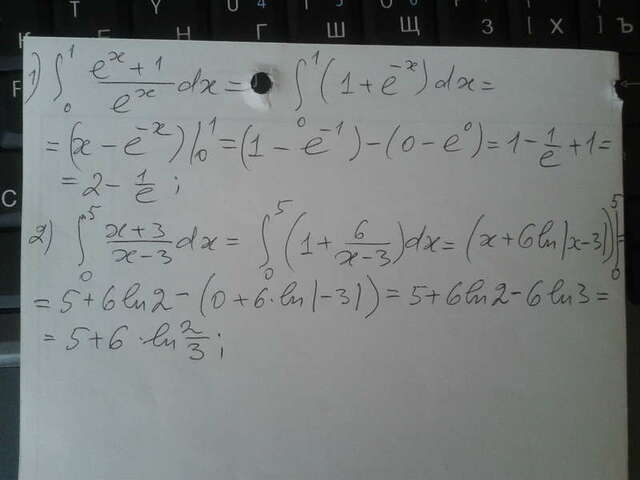 T Y U 4 O 5 6
К Е Н Г Ш Щ З { Х } Ъ
1) ∫₀¹ (eˣ + 1)/eˣ dx = ∫₀¹ (1 + e⁻ˣ) dx =
= (x − e⁻ˣ)|₀¹ = (1 − e⁻¹) − (0 − e⁰) = 1 − 1/e + 1 =
= 2 − 1/e ;
2) ∫₀⁵ (x + 3)/(x − 3) dx = ∫₀⁵ (1 + 6/(x − 3)) dx = (x + 6 ln|x − 3|)|₀⁵ =
= 5 + 6 ln 2 − (0 + 6 · ln |−3|) = 5 + 6 ln 2 − 6 ln 3 =
= 5 + 6 · ln 2/3 ;
C